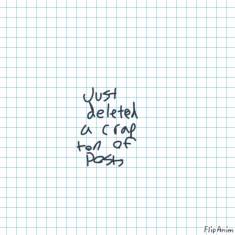 Just
deleted
a crap
ton of
Posts
FlipAnim